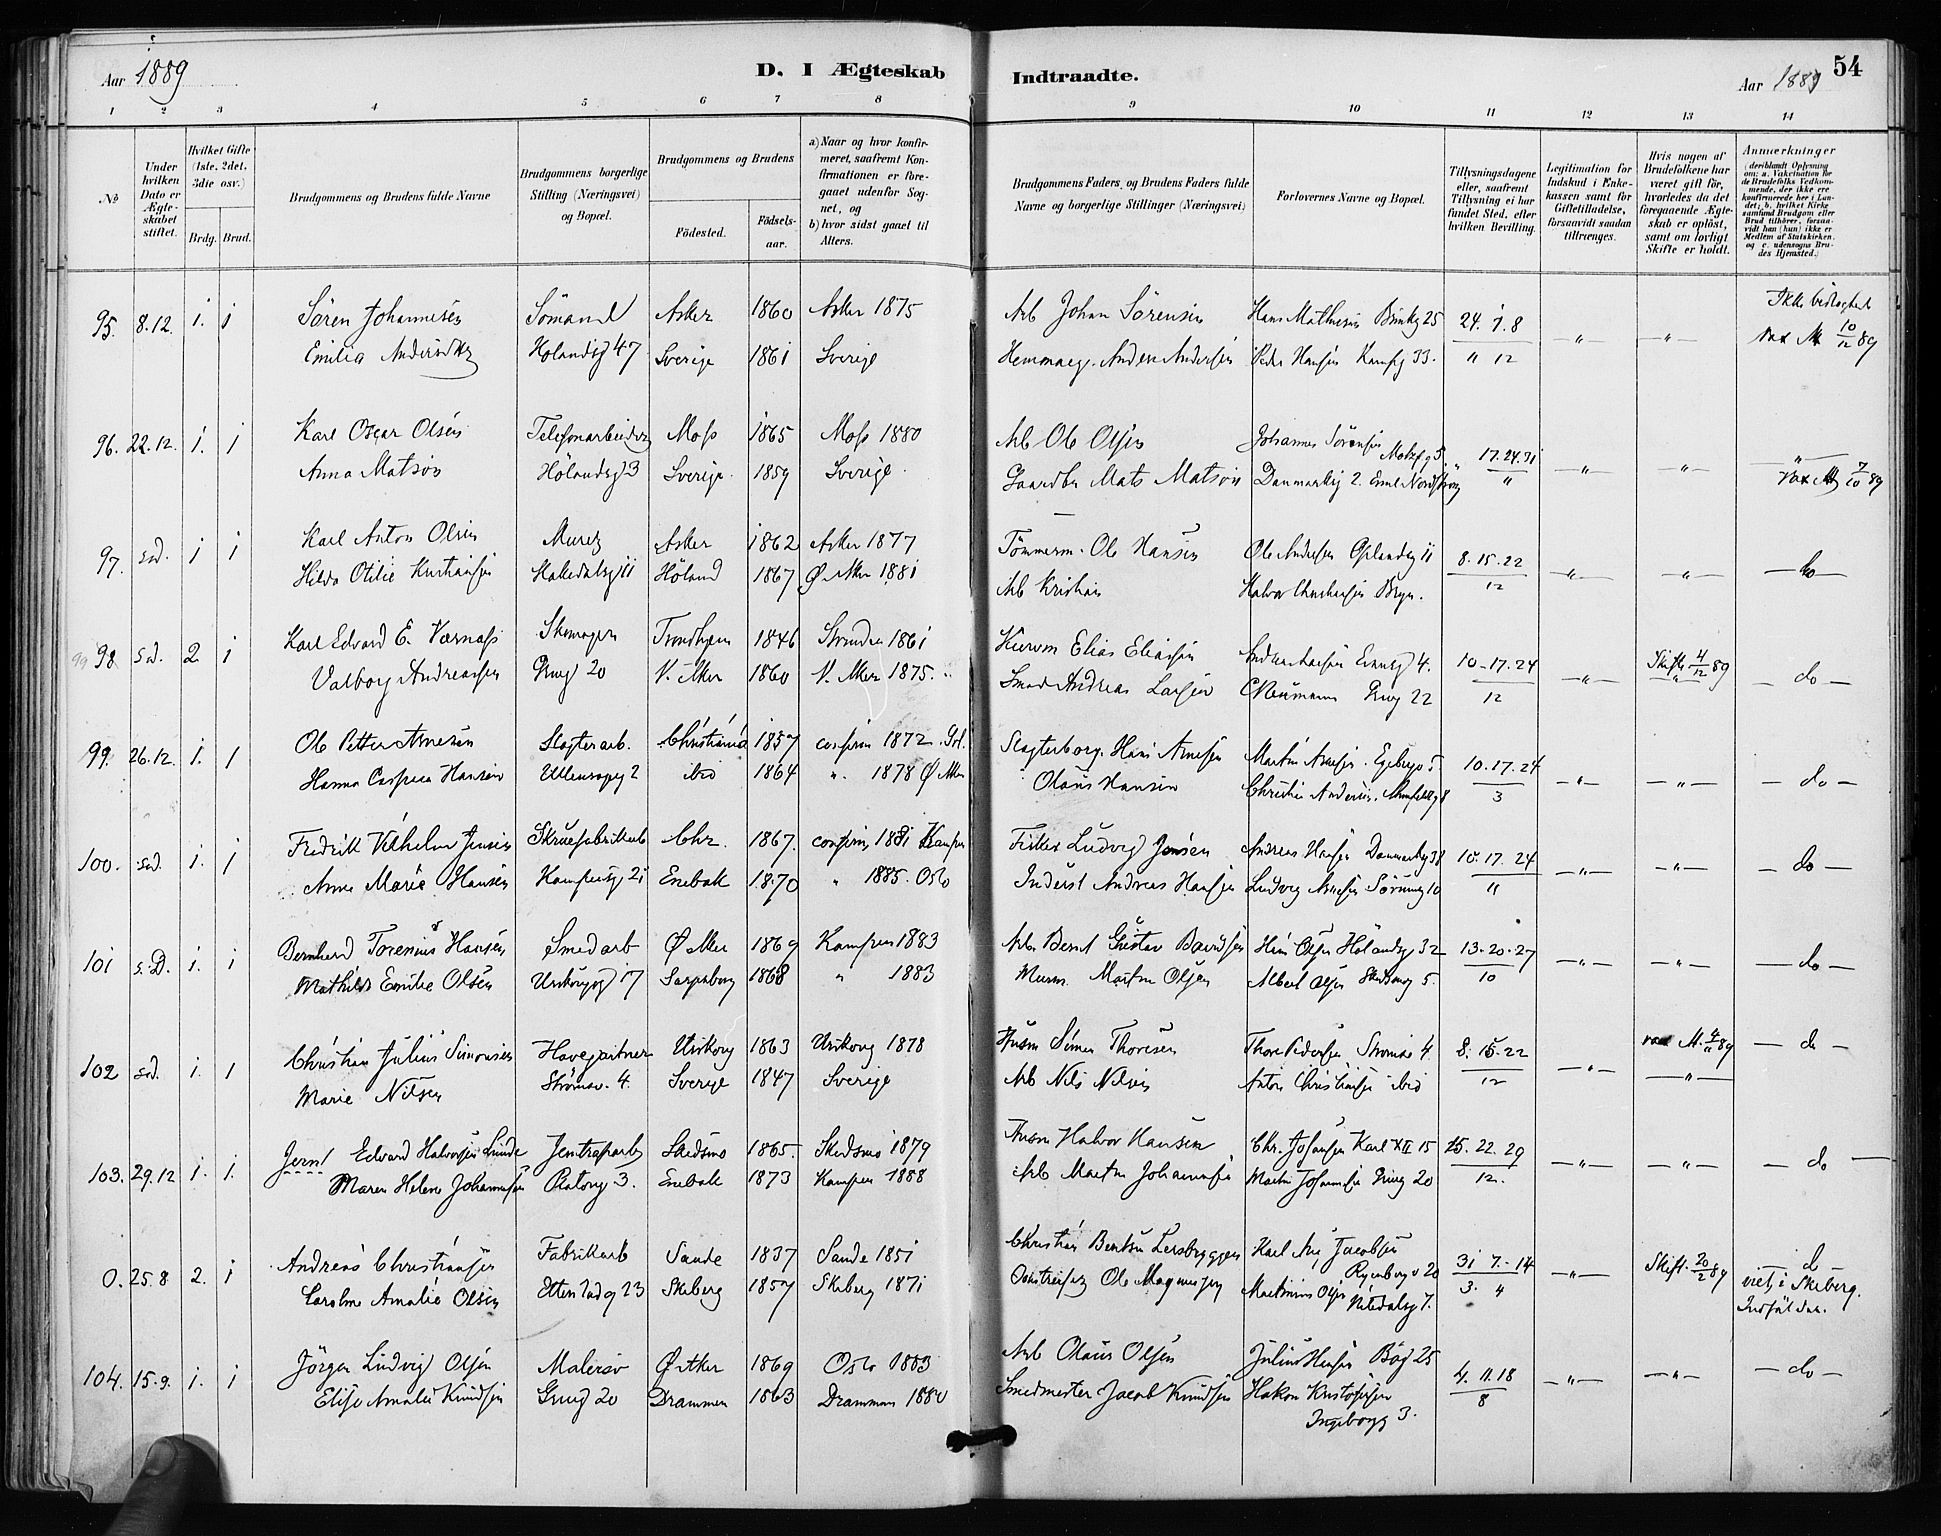 Aar 1889
D. I Ægteskab Indtraadte.
Aar 1889
54
1 2 3 4 5 6 7 8 9 10 11 12 13 14
№
Under hvilken Dato er Ægteskabet stiftet.
Hvilket Gifte (1ste, 2det, 3die osv.)
Brdg. Brud.
Brudgommens og Brudens fulde Navne
Brudgommens borgerlige Stilling (Næringsvei) og Bopæl.
Brudgommens og Brudens
Födested.
Födselsaar.
a) Naar og hvor konfirmeret, saafremt Konfirmationen er foregaaet udenfor Sognet, og
b) hvor sidst gaaet til Alters.
Brudgommens Faders, og Brudens Faders fulde Navne og borgerlige Stillinger (Næringsvei)
Forlovernes Navne og Bopæl.
Tillysningsdagene eller, saafremt Tillysning ei har fundet Sted, efter hvilken Bevilling.
Legitimation for Indskud i Enkekassen samt for Giftetilladelse, forsaavidt saadan tiltrænges.
Hvis nogen af Brudefolkene har været gift før, hvorledes da det foregaaende Ægteskab er oplöst, samt om lovligt Skifte er holdt.
Anmærkninger
(deriblandt Oplysning om: a. Vakcination for de Brudefolks Vedkommende, der ikke ere konfirmerede her i Landet; b. hvilket Kirkesamfund Brudgom eller Brud tilhörer, forsaavidt han (hun) ikke er Medlem af Statskirken, og c. udensogns Brudes Hjemsted.)
95. 8.12. 1. 1 Sören Johannesen Sömand Asker 1860 Asker 1875 Arb Johan Sörensen Hans Mathisen 25 24. 1. 8
Emilia Holandsg 47 Sverige 1861 Sverige Anders Andersen Peder Hansen Kampg 33. " 12 10/12 89
96. 22.12. 1. 1 Karl Oscar Olsen Telefonarbeider Moss 1865 Moss 1880 Arb Ole Olsen Johannes Sörensen 17.24.31
Anna Matson Hölandsg 3 Sverige 1859 Sverige Gaardbr Mats Matson Danmarksg 2. 7/10 89
97. s.d. 1 1 Karl Anton Olsen Murer Asker 1862 Asker 1877 Tömmerm. Ole Hansen Ole Andersen 11 8.15.22
Hilda Otilie Kristiansen 11 Höland 1867 Ø. Aker 1881 Arb Kristian Halvor Christensen Bryn. 12 do
98 s.d. 2 1 Karl Edvard E. Værnæss Trondhjem 1846 Strinden 1861 Elias Eliassen 4. 10-17.24 Skifte 4/12 89
Valborg Andreassen Grug 20 V. Aker 1860 V. Aker 1875. Smed Andreas Larsen C Neumann Grug 22 12 do
99. 26.12. 1. 1 Ole Petter Arnesen Slagterarb. Christiania 1857 confirm 1872 Grl. Slagterborg. Hans Arnesen Martin Arnesen. Egebergs 5. 10.17.24
Hanna Hansen Ullensagerg 2 ibid 1864 " 1878 Ø Aker Olaus Hansen Christian Andersen. 8 3 do
100. s.d. 1. 1 Fredrik Vilhelm Jensen Skruefabrikarb Chr. 1867. confirm 1881 Kampen Fisker Ludvig Jensen Andreas Hansen Danmarksg 38 10.17.24
Anne Marie Hansen Kampensg 21 Enebak 1870 " 1885. Oslo Inderst Andreas Hansen Ludvig Arnesen Sörumg 10 11 do
101 s.D. 1. 1 Bernhard Torenius Hansen Smedarb Ø Aker 1869 Kampen 1883 Arb. Bernt Gustav Hans Olsen Hölandsg 32 13.20.27
Mathilde Emilie Olsen Urskougsg 17 Sarpsborg 1868 " 1883 Murm. Martin Olsen Albert Olsen Skedsmog 5. 10 do
102 s.d. 1. 1 Christian Julius Simonsen Havegartner Urskoug 1863 Urskoug 1878 Husm Simen Thoresen Thore Pedersen Strömsv 4 8. 15.22 4/11 89
Marie Nilsen Strömsv. 4. Sverige 1847 Sverige Arb Nils Nilsen Anton Christiansen ibid 12 do
103. 29.12 1. 1. Jernt Edvard Halvorsen Lunde Skedsmo 1865. Skedsmo 1879 Husm Halvor Hansen Chr. Johansen Karl XII 15 15. 22. 29
Maren Helene Johannesen 3. Enebak 1873 Kampen 1888 Arb Martin Johannesen Martin Johannesen Grug 20 12. do
0. 25.8 2. 1 Andreas Christiansen Fabrikarb Sande 1837 Sande 1851 Christian Bentsen Karl Aug Jacobsen Ryenbergv 20 31 7. - 14 Skift. 20/2 89 d
Caroline Amalie Olsen 23 Skeberg 1857 Skeberg 1871 Ole Magnussen Martinius Olsen Nitedalsg 7. 3. " viet i Skeberg.
104. 15.9. 1. 1 Jörgen Ludvig Olsen Malersv Ø. Aker 1869 Oslo 1883 Arb Olaus Olsen Julius Hansen 25 4. 11.18
Elise Amalie Knudsen Grug 20 Drammen 1863 Drammen 1880 Smedmester Jacob Knudsen Hakon Kristofersen 8 do
Ingeborgg 3.